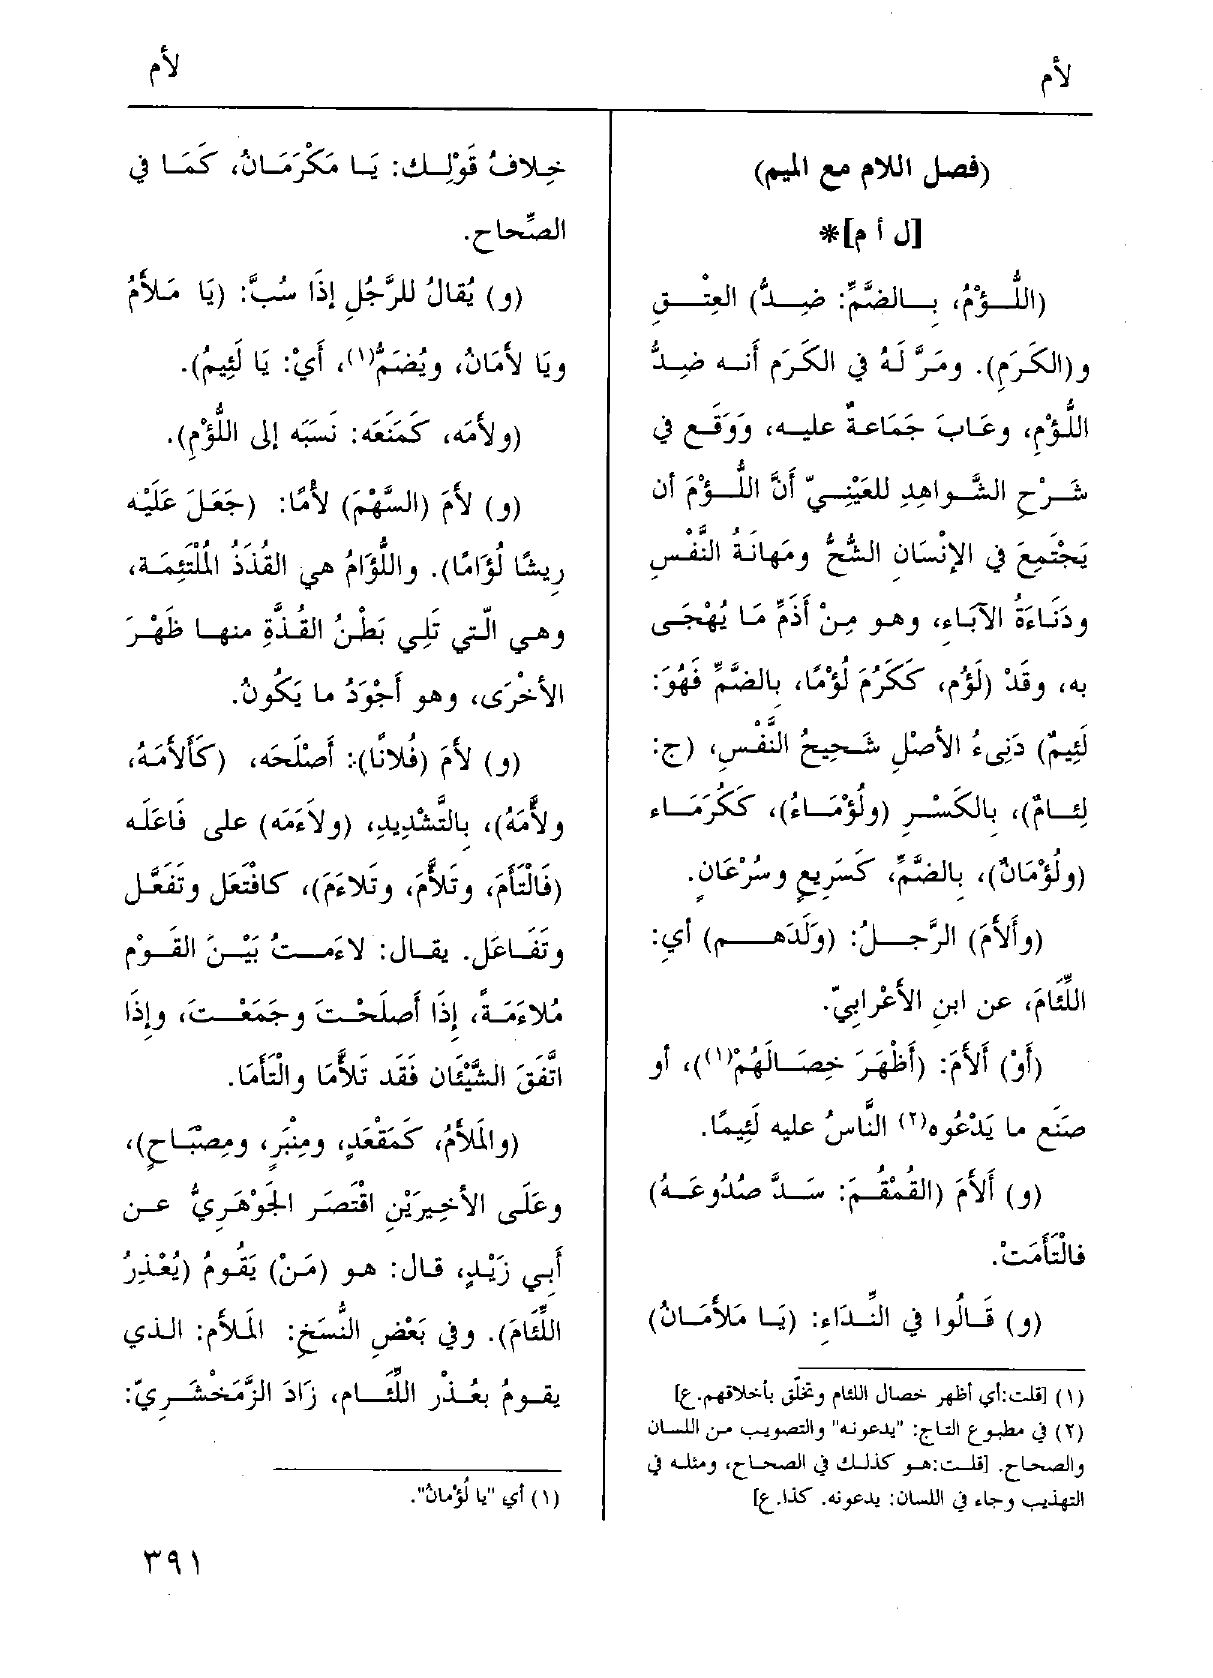 لأم
لأم
(فصل اللام مع الميم)
[ل أ م]*
(اللُّــؤْمُ، بِــالضَّمِّ: ضِــدُّ) العِتْــقِ
و(الكَرَمِ). ومَرَّ لَهُ في الكَرَم أنـه ضِـدُّ
اللُّـؤْمِ، وعَـابَ جَمَاعـةٌ عليـه، وَوَقَـع في
شَـرْحِ الشَّـواهِدِ للعَيْنِـيّ أنَّ اللُّـؤْمَ أن
يَجْتَمِعَ في الإنْسَانِ الشُّحُّ ومَهانَةُ النَّفْسِ
ودَنَـاءَةُ الآبَـاءِ، وهـو مِـنْ أذَمِّ مَـا يُهْجَـى
به، وقَدْ (لَؤُم، كَكَرُمَ لُؤْمًا، بالضَّمِّ فَهُوَ:
لَئِيمٌ) دَنِيءُ الأصْلِ شَـحِيحُ النَّفْـسِ، (ج:
لِئـامٌ)، بِالكَسْـرِ (ولُؤَمَـاءُ)، كَكُرَمَـاء
(ولُؤْمَانٌ)، بِالضَّمِّ، كَسَرِيعٍ وسُرْعَانٍ.
(وأَلأَمَ) الرَّجـلُ: (وَلَدَهـم) أي:
اللِّئَامَ، عن ابنِ الأعْرابِيّ.
(أَوْ) أَلأَمَ: (أَظْهَرَ خِصَـالَهُمْ(١))، أو
صَنَع ما يَدْعُوه(٢) النَّاسُ عليه لَئِيمًا.
(و) أَلأَمَ (القُمْقُـمَ: سَـدَّ صُدُوعَـهُ)
فالْتَأَمَتْ.
(و) قَـالُوا في النِّـدَاءِ: (يَـا مَلأَمَـانُ)
(١) [قلت:أي أظهر خصال اللئام وتخلّق بأخلاقهم.ع]
(٢) في مطبوع التاج: "يدعونه" والتصويب من اللسان
والصحاح. [قلـت:هـو كذلـك في الصحاح، ومثلـه في
التهذيب وجاء في اللسان: يدعونه. كذا.ع]
خِـلافُ قَوْلِـك: يَـا مَكْرَمَـانُ، كَمَـا في
الصِّحاح.
(و) يُقالُ للرَّجُلِ إذَا سُبَّ: (يَا مَلأَمُ
ويَا لأْمَانُ، ويُضَمُّ(١)، أَيْ: يَا لَئِيمُ).
(ولأمَه، كَمَنَعَه: نَسَبَه إلى اللُّؤْمِ).
(و) لأَمَ (السَّهْمَ) لأْمًا: (جَعَلَ عَلَيْه
رِيشًا لُؤَامًا). واللُّؤَامُ هي القُذَذُ المُلْتَئِمَـة،
وهـي الَّـتي تَلِـي بَطْـنُ القُـذَّةِ منهـا ظَهْـرَ
الأخْرَى، وهو أَجْوَدُ ما يَكُونُ.
(و) لأَمَ (فُلانًا): أَصْلَحَه، (كَأَلأَمَهُ،
ولأَّمَهُ)، بِالتَّشْدِيدِ، (ولاَءَمَه) على فَاعَلَه
(فَالْتَأَمَ، وتَلأَّمَ، وتَلاءَمَ)، كافْتَعَل وتَفَعَّـل
وتَفَـاعَل. يقـال: لاءَمـتُ بَيْـنَ القَـوْم
مُلاءَمَـةً، إذَا أَصلَحْـتَ وجَمَعْـتَ، وإذَا
اتَّفَقَ الشَّيْئَان فَقَد تَلأَّمَا والْتَأَمَا.
(والمَلأَمُ، كَمَقْعَدٍ، ومِنْبَرٍ، ومِصْبَاحٍ)،
وعَلَى الأخِيرَيْنِ اقْتَصَر الجَوْهَرِيُّ عـن
أبي زَيْدٍ، قـال: هـو (مَـنْ) يَقُـومُ (يُعْـذِرُ
اللِّئَامَ). وفي بَعْضِ النُّسَخِ: المَلأَم: الـذي
يقـومُ بعُـذْرِ اللِّئَـام، زَادَ الزَّمَخْشَـرِيّ:
(١) أي "يا لُؤْمانُ".
٣٩١